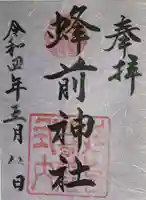 奉拝
蜂前神社
令和四年三月八日